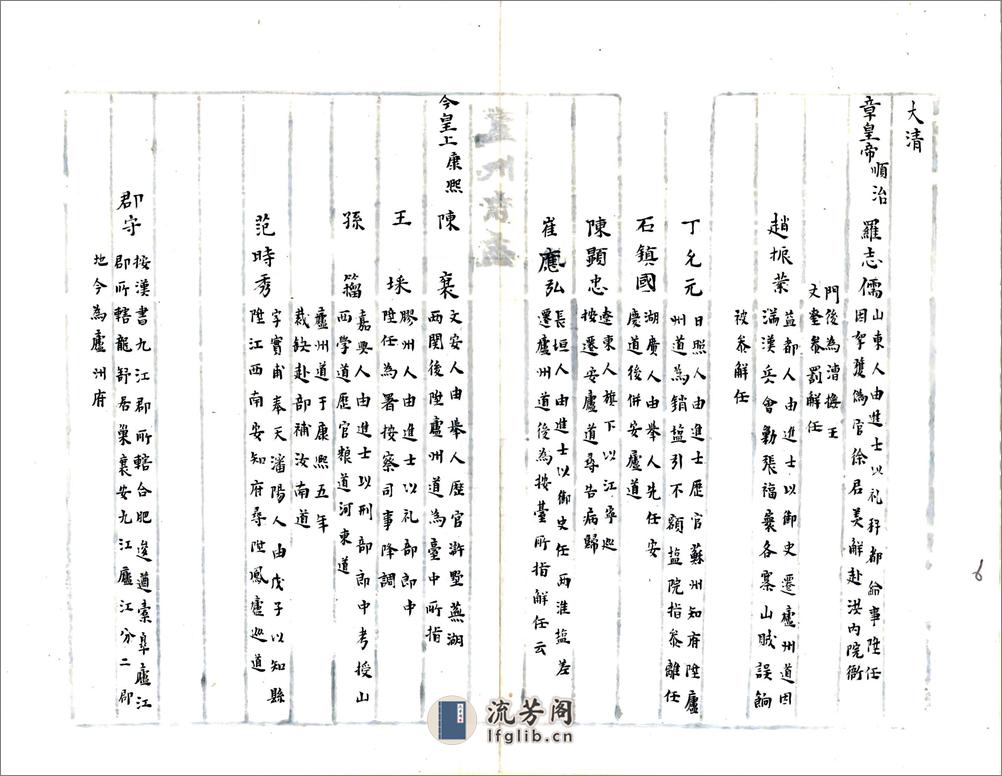 大清
章皇帝順治
羅志儒
山東人由進士以礼科都僉事陞任
因拏獲偽官徐君美解赴洪內院衙
門後為漕撫王
文奎叅罰解任
趙振業
益都人由進士以御史遷廬州道因
滿漢兵會勦張福寰各寨山賊誤餉
被叅解任
丁允元
日照人由進士歷官蘇州知府陞廬
州道為銷塩引不額塩院指叅離任
石鎮國
湖廣人由舉人先任安
慶道後併安廬道
陳顯忠
遼東人旗下以江寧巡
按遷安廬道尋告病歸
崔應弘
長垣人由進士以御史任兩淮塩差
遷廬州道後為按臺所指解任云
今皇上康熙
陳襄
文安人由舉人歷官滸墅蕪湖
西関後陞廬州道為臺中所指
王埰
膠州人由進士以礼部郎中
陞任為署按察司事降調
孫籀
嘉興人由進士以刑部郎中考授山
西學道歷官粮道河東道
廬州道于康熙五年
裁缺赴部補汝南道
范時秀
字實甫奉天瀋陽人由戊子以知縣
陞江西南安知府尋陞鳳廬巡道
郡守
按漢書九江郡所轄合肥逡遒橐皋廬江
郡所轄龍舒居巢襄安九江廬江分二郡
地今為廬州府
6
流芳阁
lfglib.cn